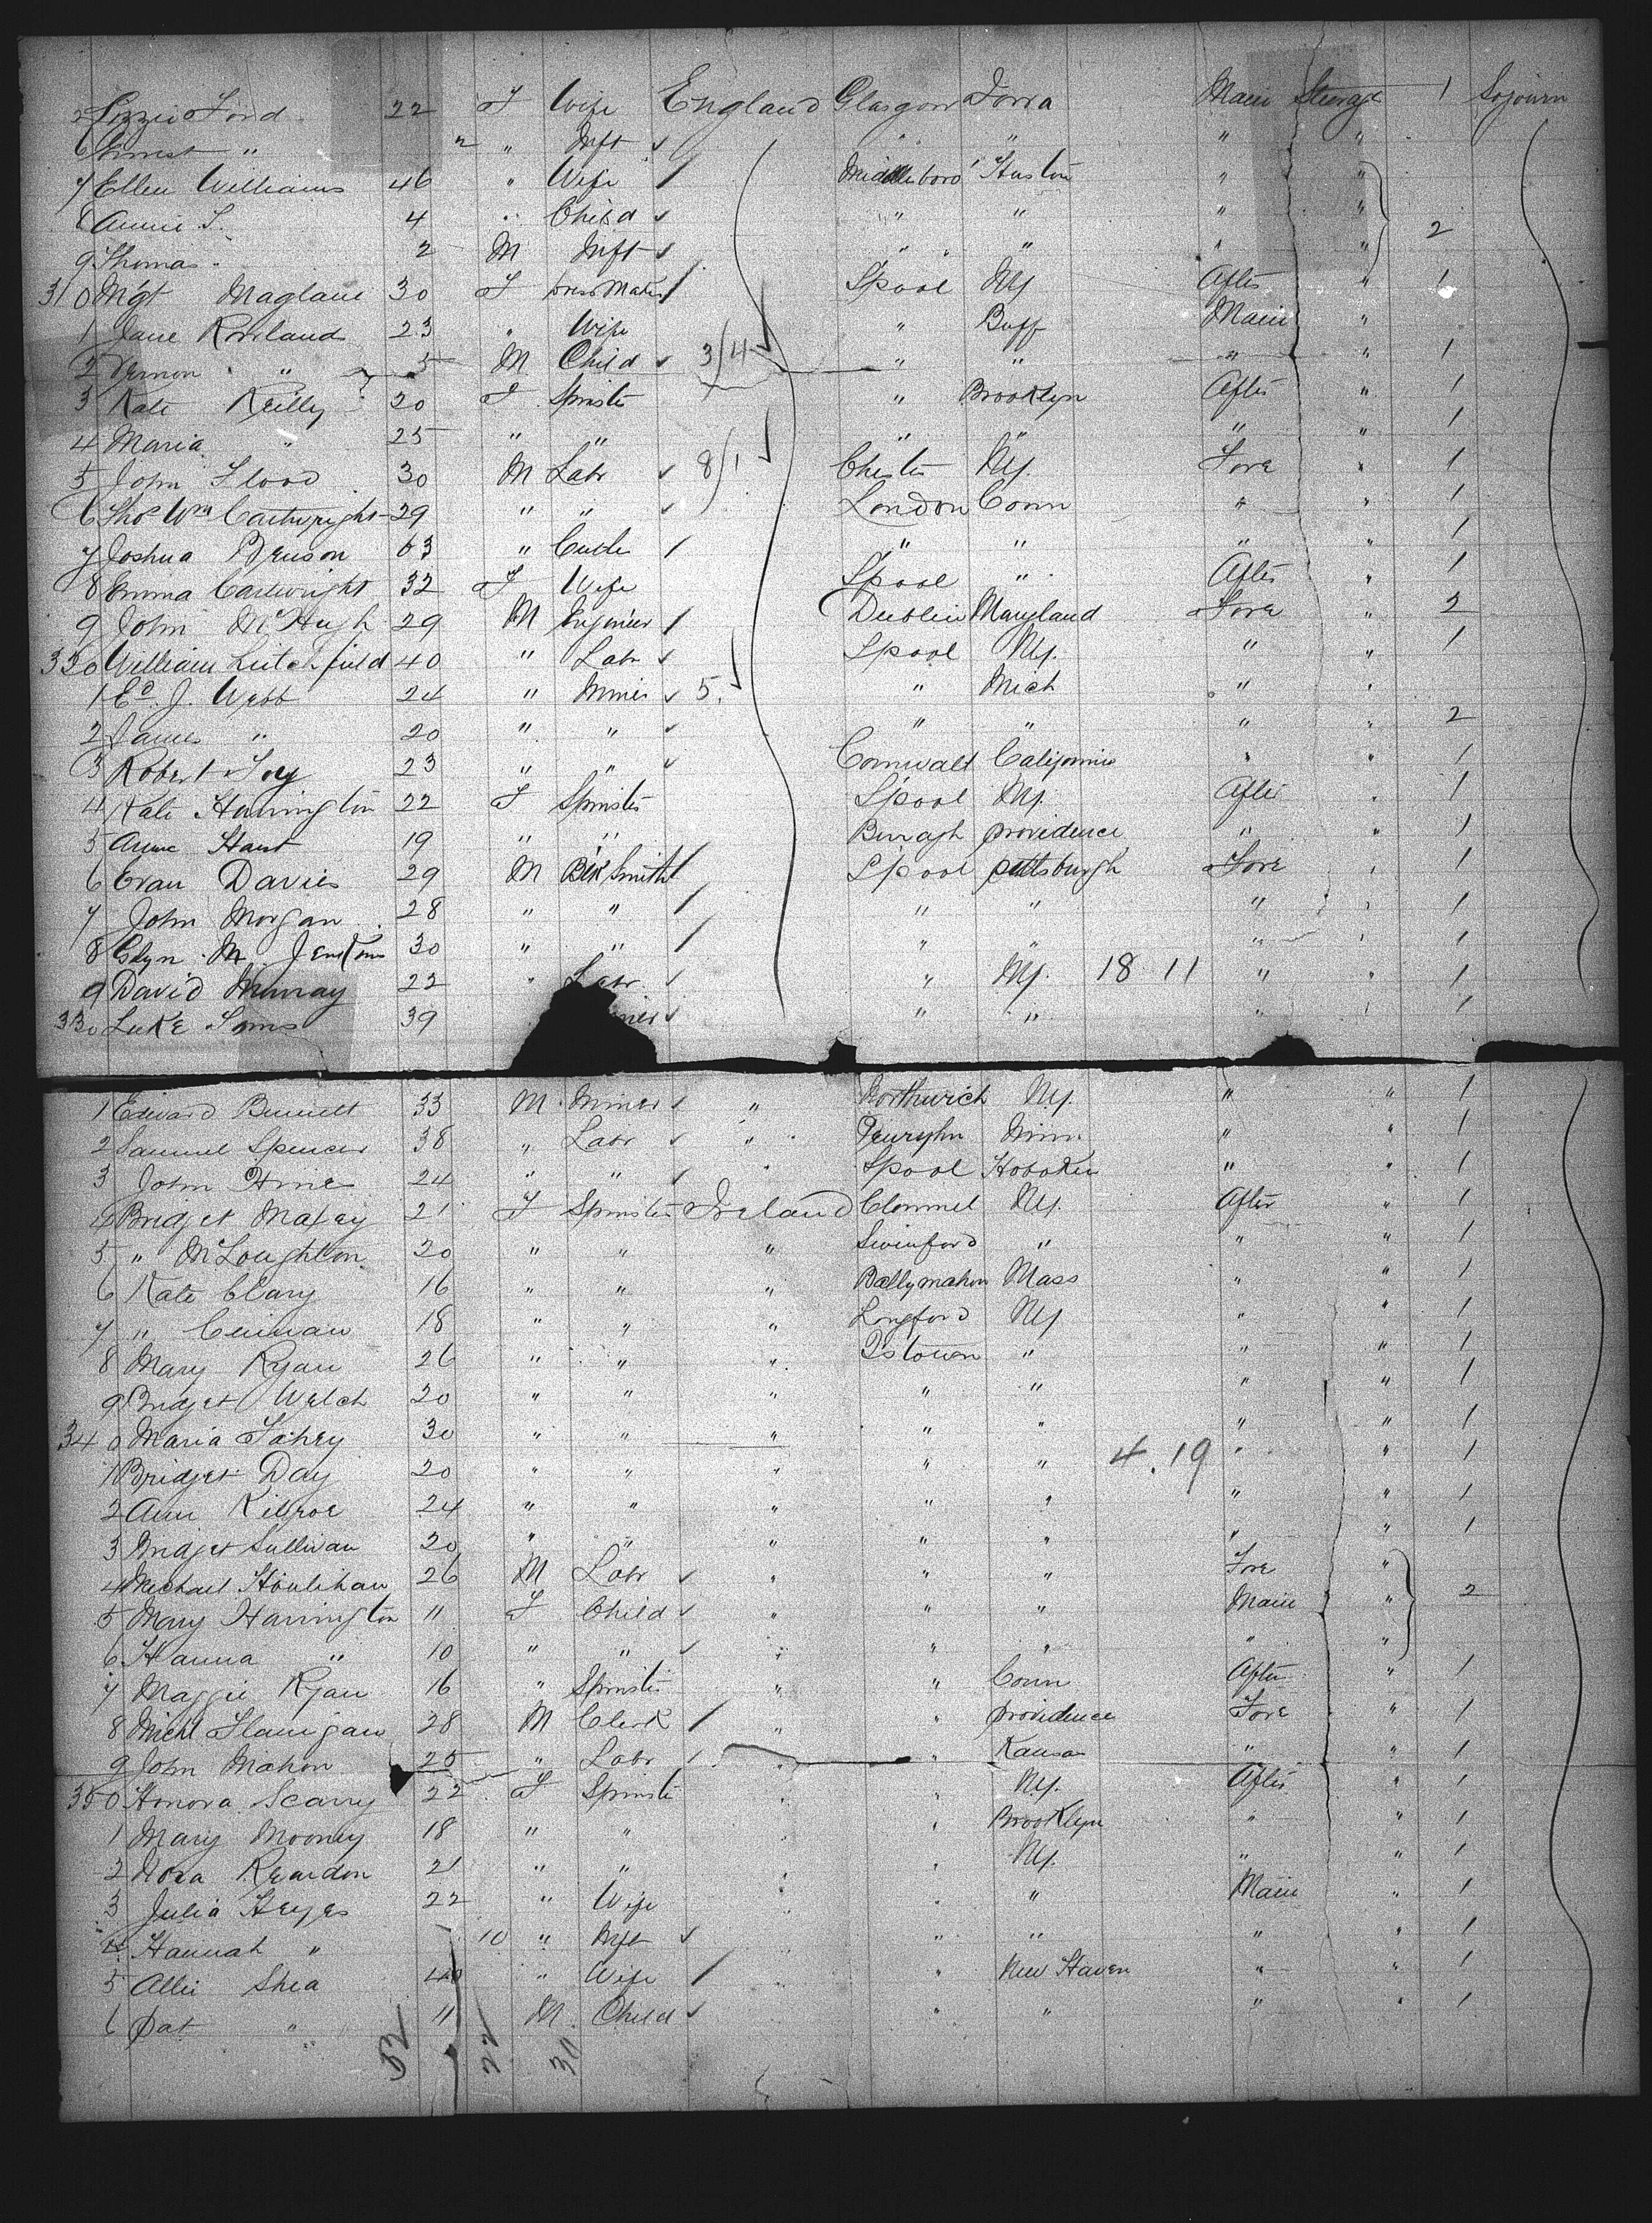 Lizzie Ford 22 F Wife England Glasgow Iowa Main Steerage 1 Sojourn
6 Ernest " 2 " Inft " " " "
7 Ellen Williams 46 " Wife Middlesboro' Huston " "
8 Annie S. 4 " Child " " " "
9 Thomas 2 M Inft " " " " 2
310 Mgt Maglaue 30 F Dress Maker Lpool NY After " 1
1 Jane Rowland 23 " Wife " Buff Main "
2 Vernon " 5 M Child 3/4 " " " " 1
3 Kate Reilly 20 F Spinster " Brooklyn After " 1
4 Maria " 25 " " " " " " 1
5 John Flood 30 M Labr 8/1 Chester NY. Fore " 1
6 Thos Wm Cartwright 29 " " London Conn " " 1
7 Joshua Benson 63 " Cutler " " " " 1
8 Emma Cartwright 32 F Wife Lpool " After " 1
9 John McHugh 29 M Engineer Dublin Maryland Fore " 2
320 William Lutchfield 40 " Labr Lpool NY. " " 1
1 Ed. J. Webb 24 " Miner 5. " Mich " "
2 James " 20 " " " " " " 2
3 Robert Foy 23 " " Cornwall California " " 1
4 Kate Harrington 22 F Spinster Lpool NY. After " 1
5 Anne Hart 19 " " providence " " 1
6 Evan Davies 29 M Blk Smith Lpool pittsburgh Fore " 1
7 John Morgan 28 " " " " " " 1
8 Glyn M Jenkins 30 " " " " " 1
9 David Murray 22 " Labr " NY. 18 11 " " 1
330 Luke Sims 39 " " " " 1
1 Edward Burnett 33 M Miner " Northwich NY. " " 1
2 Samuel Spencer 38 " Labr " Penryhn Minn " " 1
3 John Hine 24 " " " Lpool Hoboken " " 1
4 Bridget Maxey 21 F Spinster Ireland Clonmel NY. After " 1
5 " McLoughlin 20 " " " Swinford " " " 1
6 Kate Clary 16 " " " Ballymahon Mass " " 1
7 " 18 " " " Longford NY " " 1
8 Mary Ryan 26 " " " Qstown " " " 1
9 Bridget Welch 20 " " " " " " " 1
340 Maria Fahey 30 " " " " " " " 1
1 Bridget Day 20 " " " " " 4.19 " " 1
2 Ann Kilroe 24 " " " " " " " 1
3 Bridget Sullivan 20 " " " " " " " 1
4 Michael Houlihan 26 M Labr " " " Fore "
5 Mary Harrington 11 F Child " " " Main " 2
6 Hanna " 10 " " " " " " "
7 Maggie Ryan 16 " Spinster " " Conn After " 1
8 Michl Flanigan 28 M Clerk " " providence Fore " 1
9 John Mahon 25 " Labr " " Kansas " " 1
350 Honora Scarry 22 F Spinster " " NY. After " 1
1 Mary Mooney 18 " " " " Brooklyn " " 1
2 Nora Reardon 21 " " " " NY. " " 1
3 Julia Heyes 22 " Wife " " " Main " 1
4 Hannah " 10 " Inft " " " " " 1
5 Allie Shea 40 " Wife " " New Haven " " 1
6 Pat " 11 M Child " " " " 1
52 22 30